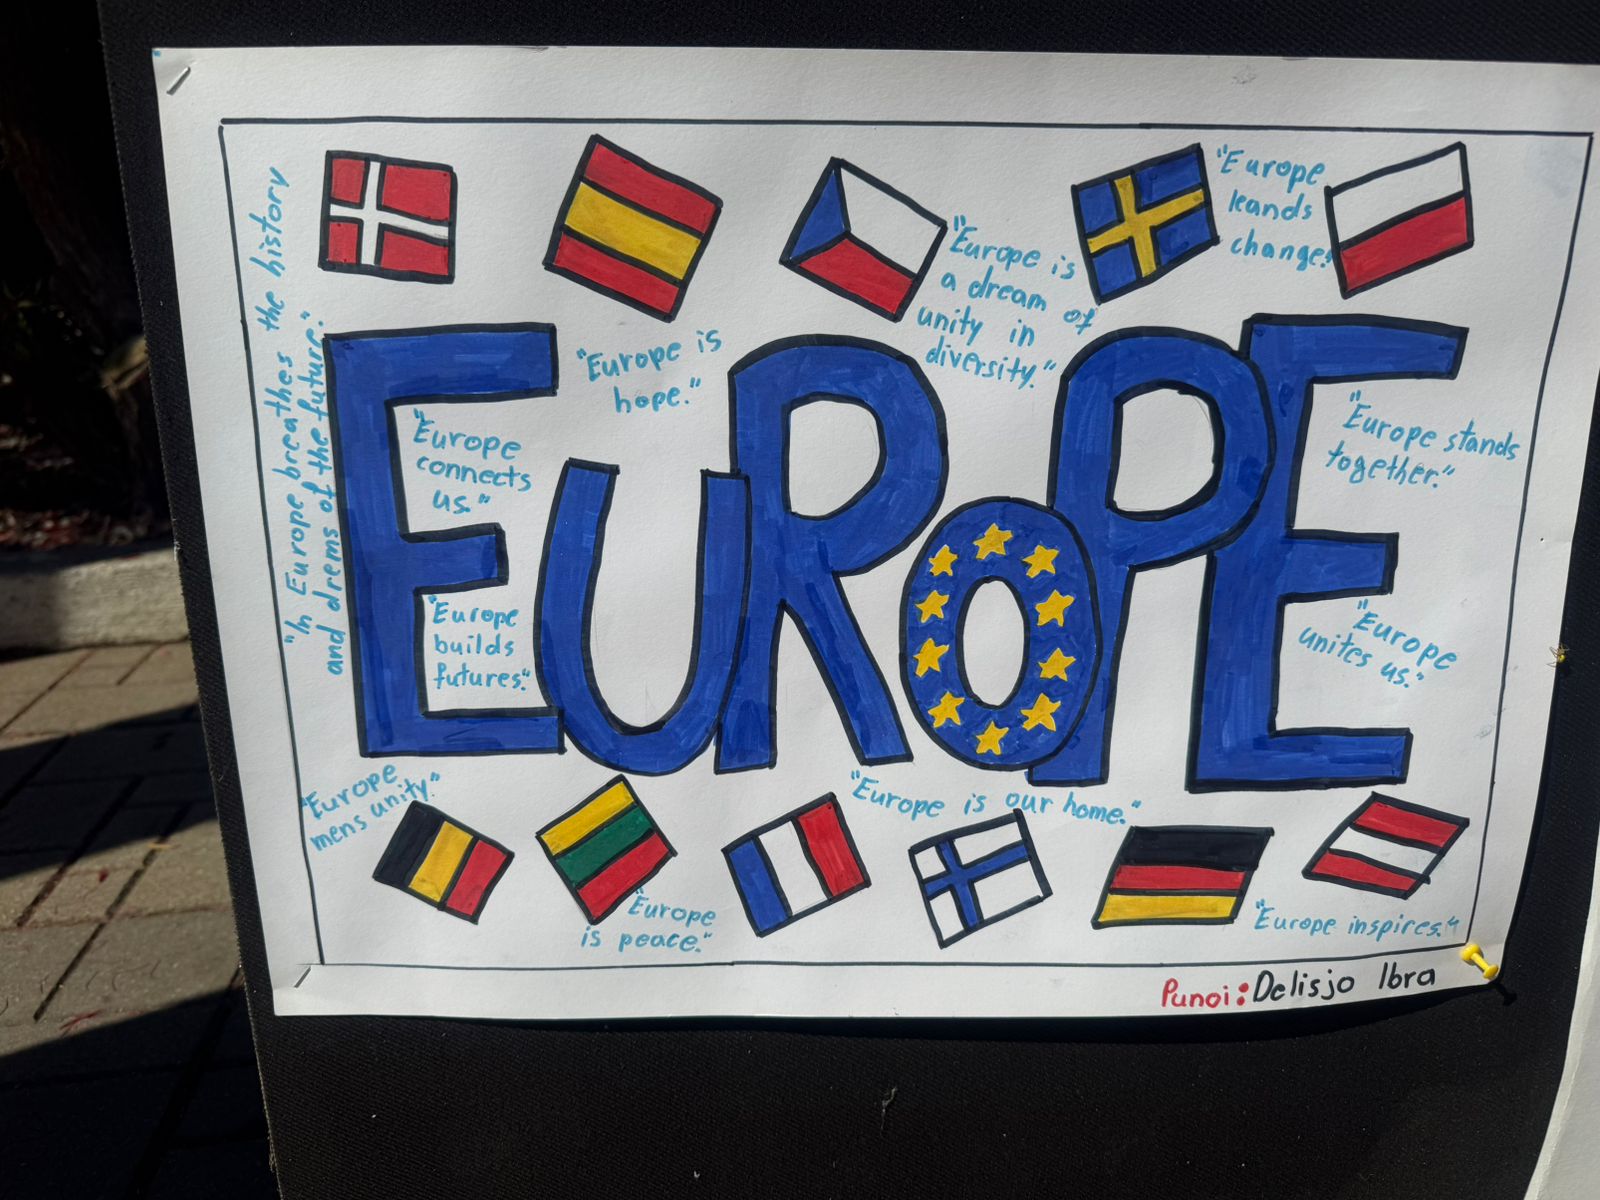 "In Europe breathes the history
and drems of the future."
"Europe
leands
change."
"Europe is
a dream of
unity in
diversity."
"Europe is
hope."
"Europe
connects
us."
"Europe stands
together."
EUROPE
"Europe
builds
futures."
"Europe
unites us."
"Europe
mens unity."
"Europe is our home."
"Europe
is peace."
"Europe inspires."
Punoi: Delisjo Ibra